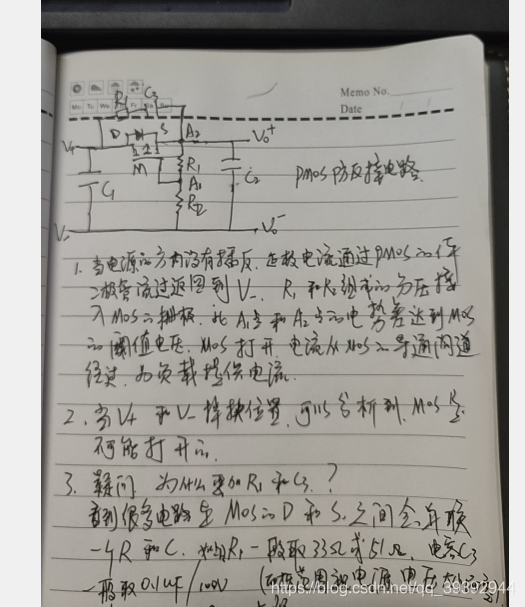 Memo No.
Date
Mo Tu We Th Fr Sa Su
R1 C3
D S A2
V+ V0+
M R1
C1 A1 C2
R2
V- V0-
PMOS防反接电路
1. 当电源的方向没有接反,正极电流通过PMOS的体
二极管流过返回到V-. R1和R2组成的分压接
入MOS的栅极,此A1点和A2点的电势差达到MOS
的阈值电压,MOS打开,电流从MOS的导通沟道
经过,为负载提供电流.
2. 当V+和V-掉换位置,可以分析到,MOS是
不可能打开的.
3. 疑问 为什么要加R1和C3?
看到很多电路是MOS的D和S之间会串联
一个R和C. R1一般取33Ω或51Ω, 电容C3
一般取0.1uF/100V
https://blog.csdn.net/qq_39392944